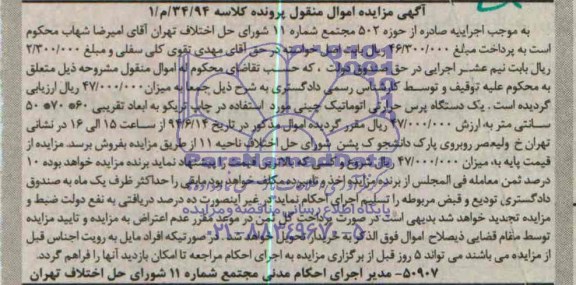 آگهی مزایده اموال منقول پرونده کلاسه ۱/م/۳۴/۹۴
به موجب اجراییه صادره از حوزه ۵۰۲ مجتمع شماره ۱۱ شورای حل اختلاف تهران آقای امیرضا شهاب محکوم
است به پرداخت مبلغ ۴۶/۳۰۰/۰۰۰ ریال بابت اصل خواسته در حق آقای مهدی تقوی کلی سفلی و مبلغ ۲/۳۰۰/۰۰۰
ریال بابت نیم عشر اجرایی در حق صندوق دولت ، که حسب تقاضای محکوم له اموال منقول مشروحه ذیل متعلق
به محکوم علیه توقیف و توسط کارشناس رسمی دادگستری به شرح ذیل جمعا به میزان ۴۷/۰۰۰/۰۰۰ ریال ارزیابی
گردیده است . یک دستگاه پرس حرارتی اتوماتیک چینی مورد استفاده در چاپ تریکو به ابعاد تقریبی ۶۰* ۷۰* ۵۰
سانتی متر به ارزش ۴۷/۰۰۰/۰۰۰ ریال مقرر گردیده اموال مذکور در تاریخ ۹۴/۶/۱۴ از ساعت ۱۵ الی ۱۶ در نشانی
تهران خ ولیعصر روبروی پارک دانشجو ک پشن شورای حل اختلاف ناحیه ۱۱ از طریق مزایده بفروش برسد. مزایده از
قیمت پایه به میزان ۴۷/۰۰۰/۰۰۰ ریال شروع و کسی که بالاترین قیمت را پیشنهاد نماید برنده مزایده خواهد بوده ۱۰
درصد ثمن معامله فی المجلس از برنده مزایده اخذ و نامبرده مکلف خواهد بود مابقی را حداکثر ظرف یک ماه به صندوق
دادگستری تودیع و قبض مربوطه را تسلیم اجرای احکام نماید در غیر اینصورت ده درصد دریافتی به نفع دولت ضبط و
مزایده تجدید خواهد شد بدیهی است در صورت پرداخت کل ثمن در موعد مقرر عدم اعتراض به مزایده و تایید مزایده
توسط مقام قضایی ذیصلاح اموال فوق الذکر به خریدار تحویل خواهد شد . در صورتیکه افراد مایل به رویت اجناس قبل
از مزایده می باشند می تواند ۵ روز قبل از برگزاری مزایده به اجرای احکام مراجعه تا امکان بازدید آنها را فراهم گردد.
۵۰۹۰۷- مدیر اجرای احکام مدنی مجتمع شماره ۱۱ شورای حل اختلاف تهران
ParsNamadData
پایگاه اطلاع رسانی مناقصه و مزایده
۰۲۱-۸۸۳۴۹۶۷۰-۵